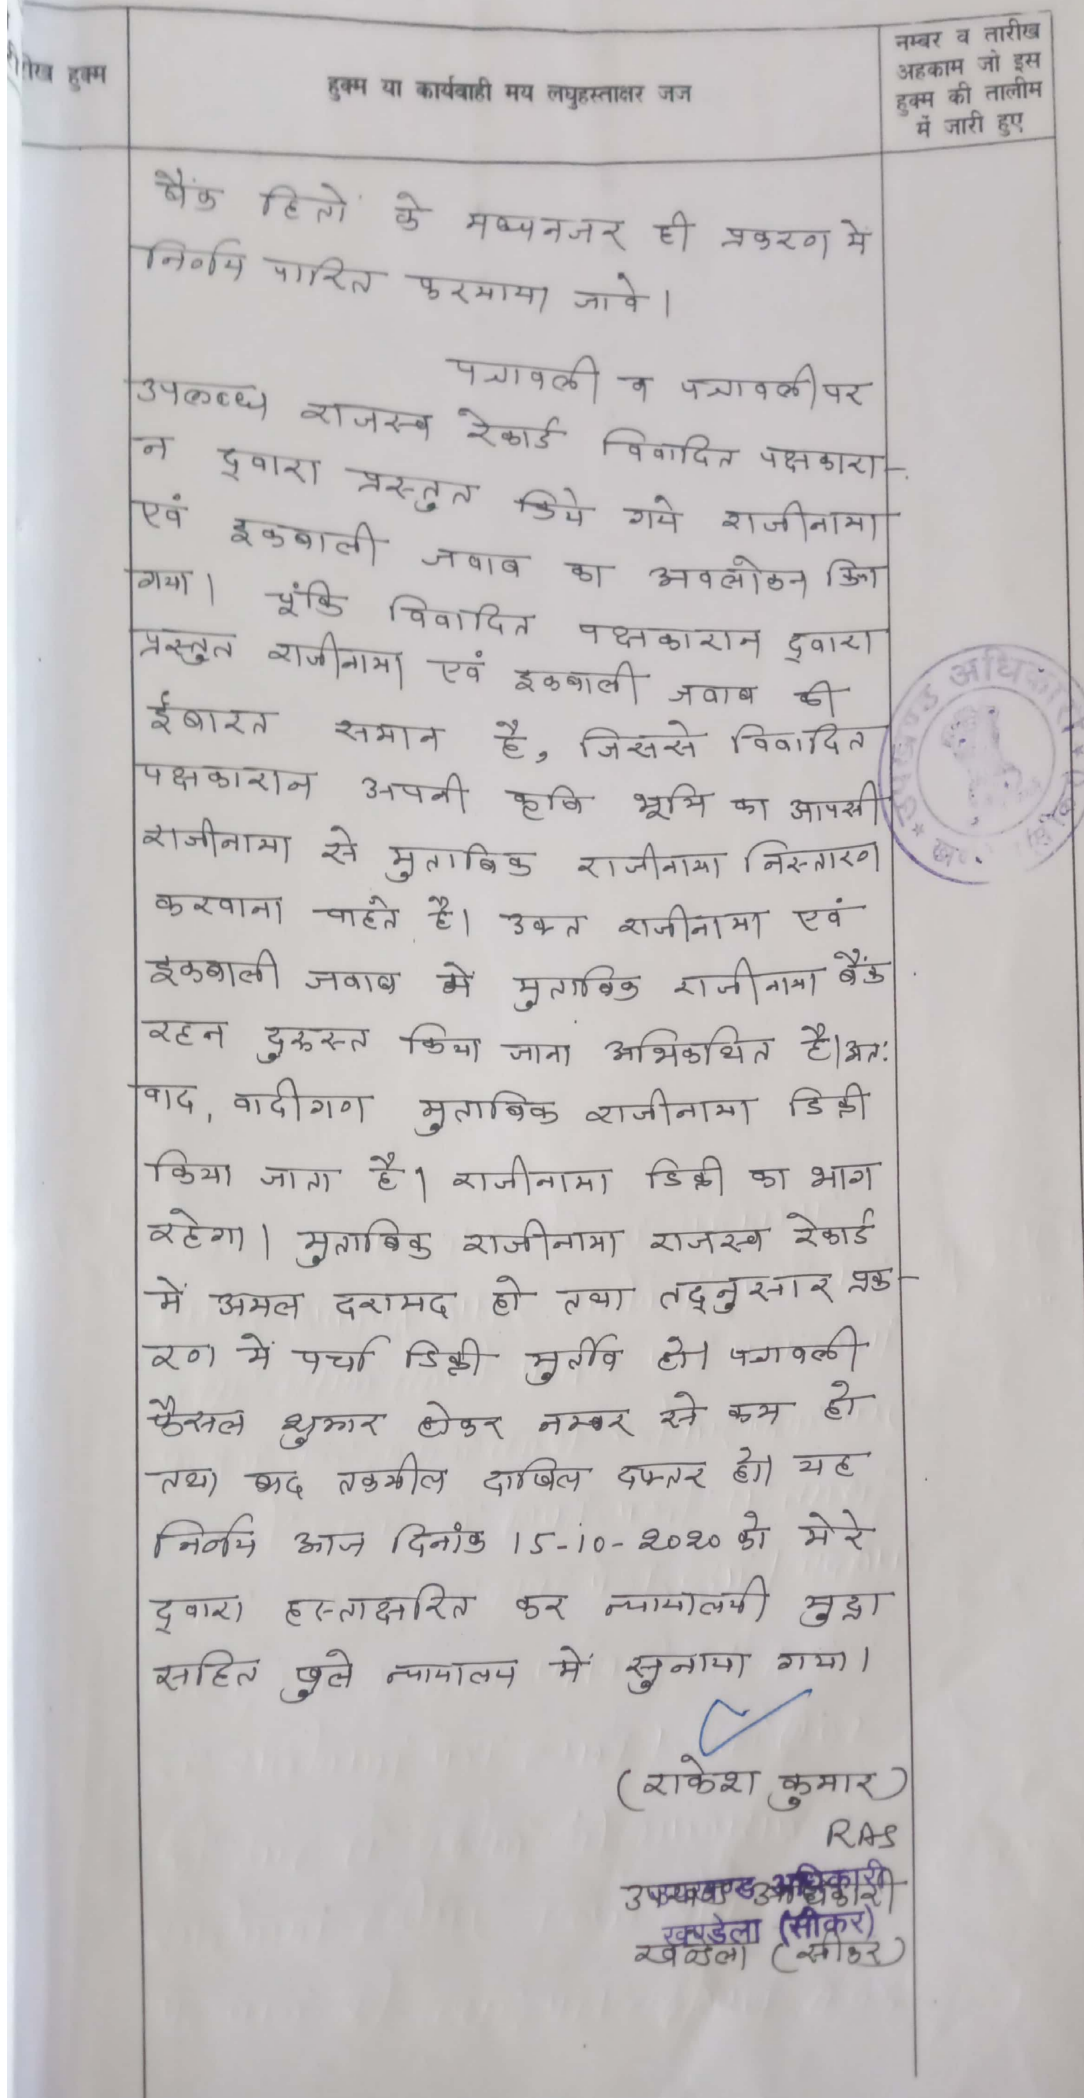 रीख हुक्म
हुक्म या कार्यवाही मय लघुहस्ताक्षर जज
नम्बर व तारीख
अहकाम जो इस
हुक्म की तालीम
में जारी हुए
बैंक हितों के मध्यनजर ही प्रकरण में
निर्णय पारित फरमाया जावे।
पत्रावली व पत्रावली पर
उपलब्ध राजस्व रेकार्ड विवादित पक्षकारा-
न द्वारा प्रस्तुत किये गये राजीनामा
एवं इकबाली जवाब का अवलोकन किया
गया। चूंकि विवादित पक्षकारान द्वारा
प्रस्तुत राजीनामा एवं इकबाली जवाब की
ईबारत समान है, जिससे विवादित
पक्षकारान अपनी कृषि भूमि का आपसी
राजीनामा से मुताबिक राजीनामा निस्तारण
करवाना चाहते है। उक्त राजीनामा एवं
इकबाली जवाब में मुताबिक राजीनामा बैंक
रहन दुरूस्त किया जाना अभिकथित है। अतः
वाद, वादीगण मुताबिक राजीनामा डिक्री
किया जाता है। राजीनामा डिक्री का भाग
रहेगा। मुताबिक राजीनामा राजस्व रेकार्ड
में अमल दरामद हो तथा तद्नुसार प्रक-
रण में पर्चा डिक्री मुर्तीब हो। पत्रावली
फैसल शुमार होकर नम्बर से कम हो
तथा बाद तकमील दाखिल दफ्तर हो। यह
निर्णय आज दिनांक 15-10-2020 को मेरे
द्वारा हस्ताक्षरित कर न्यायालयी मुद्रा
सहित खुले न्यायालय में सुनाया गया।
(राकेश कुमार)
RAS
उपखण्ड अधिकारी
उपखण्ड अधिकारी
खण्डेला (सीकर)
खण्डेला (सीकर)
उपखण्ड अधिकारी